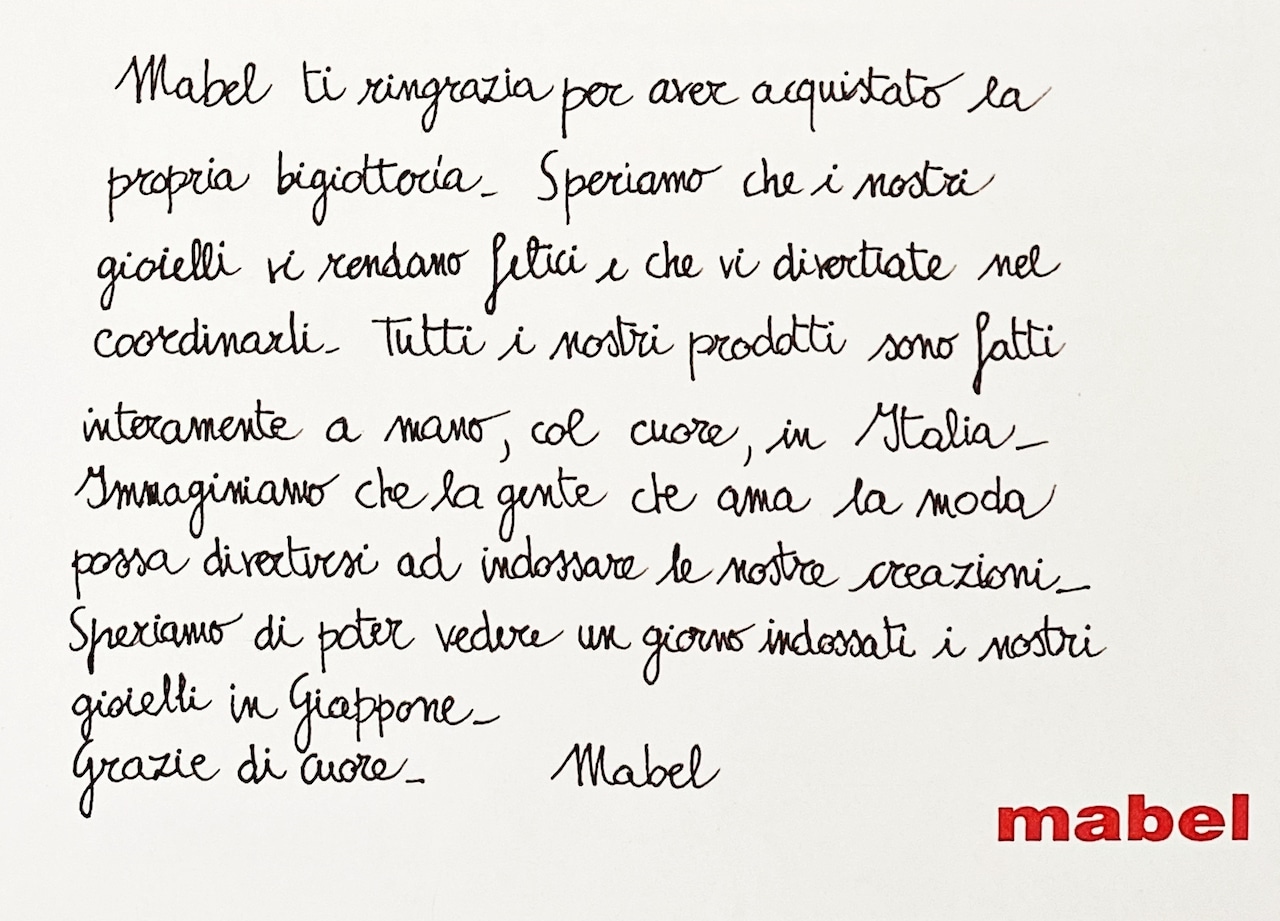 Mabel ti ringrazia per aver acquistato la
propria bigiotteria_ Speriamo che i nostri
gioielli vi rendano felici e che vi divertiate nel
coordinarli_ Tutti i nostri prodotti sono fatti
interamente a mano, col cuore, in Italia_
Immaginiamo che la gente che ama la moda
possa divertirsi ad indossare le nostre creazioni_
Speriamo di poter vedere un giorno indossati i nostri
gioielli in Giappone_
Grazie di cuore_ Mabel
mabel